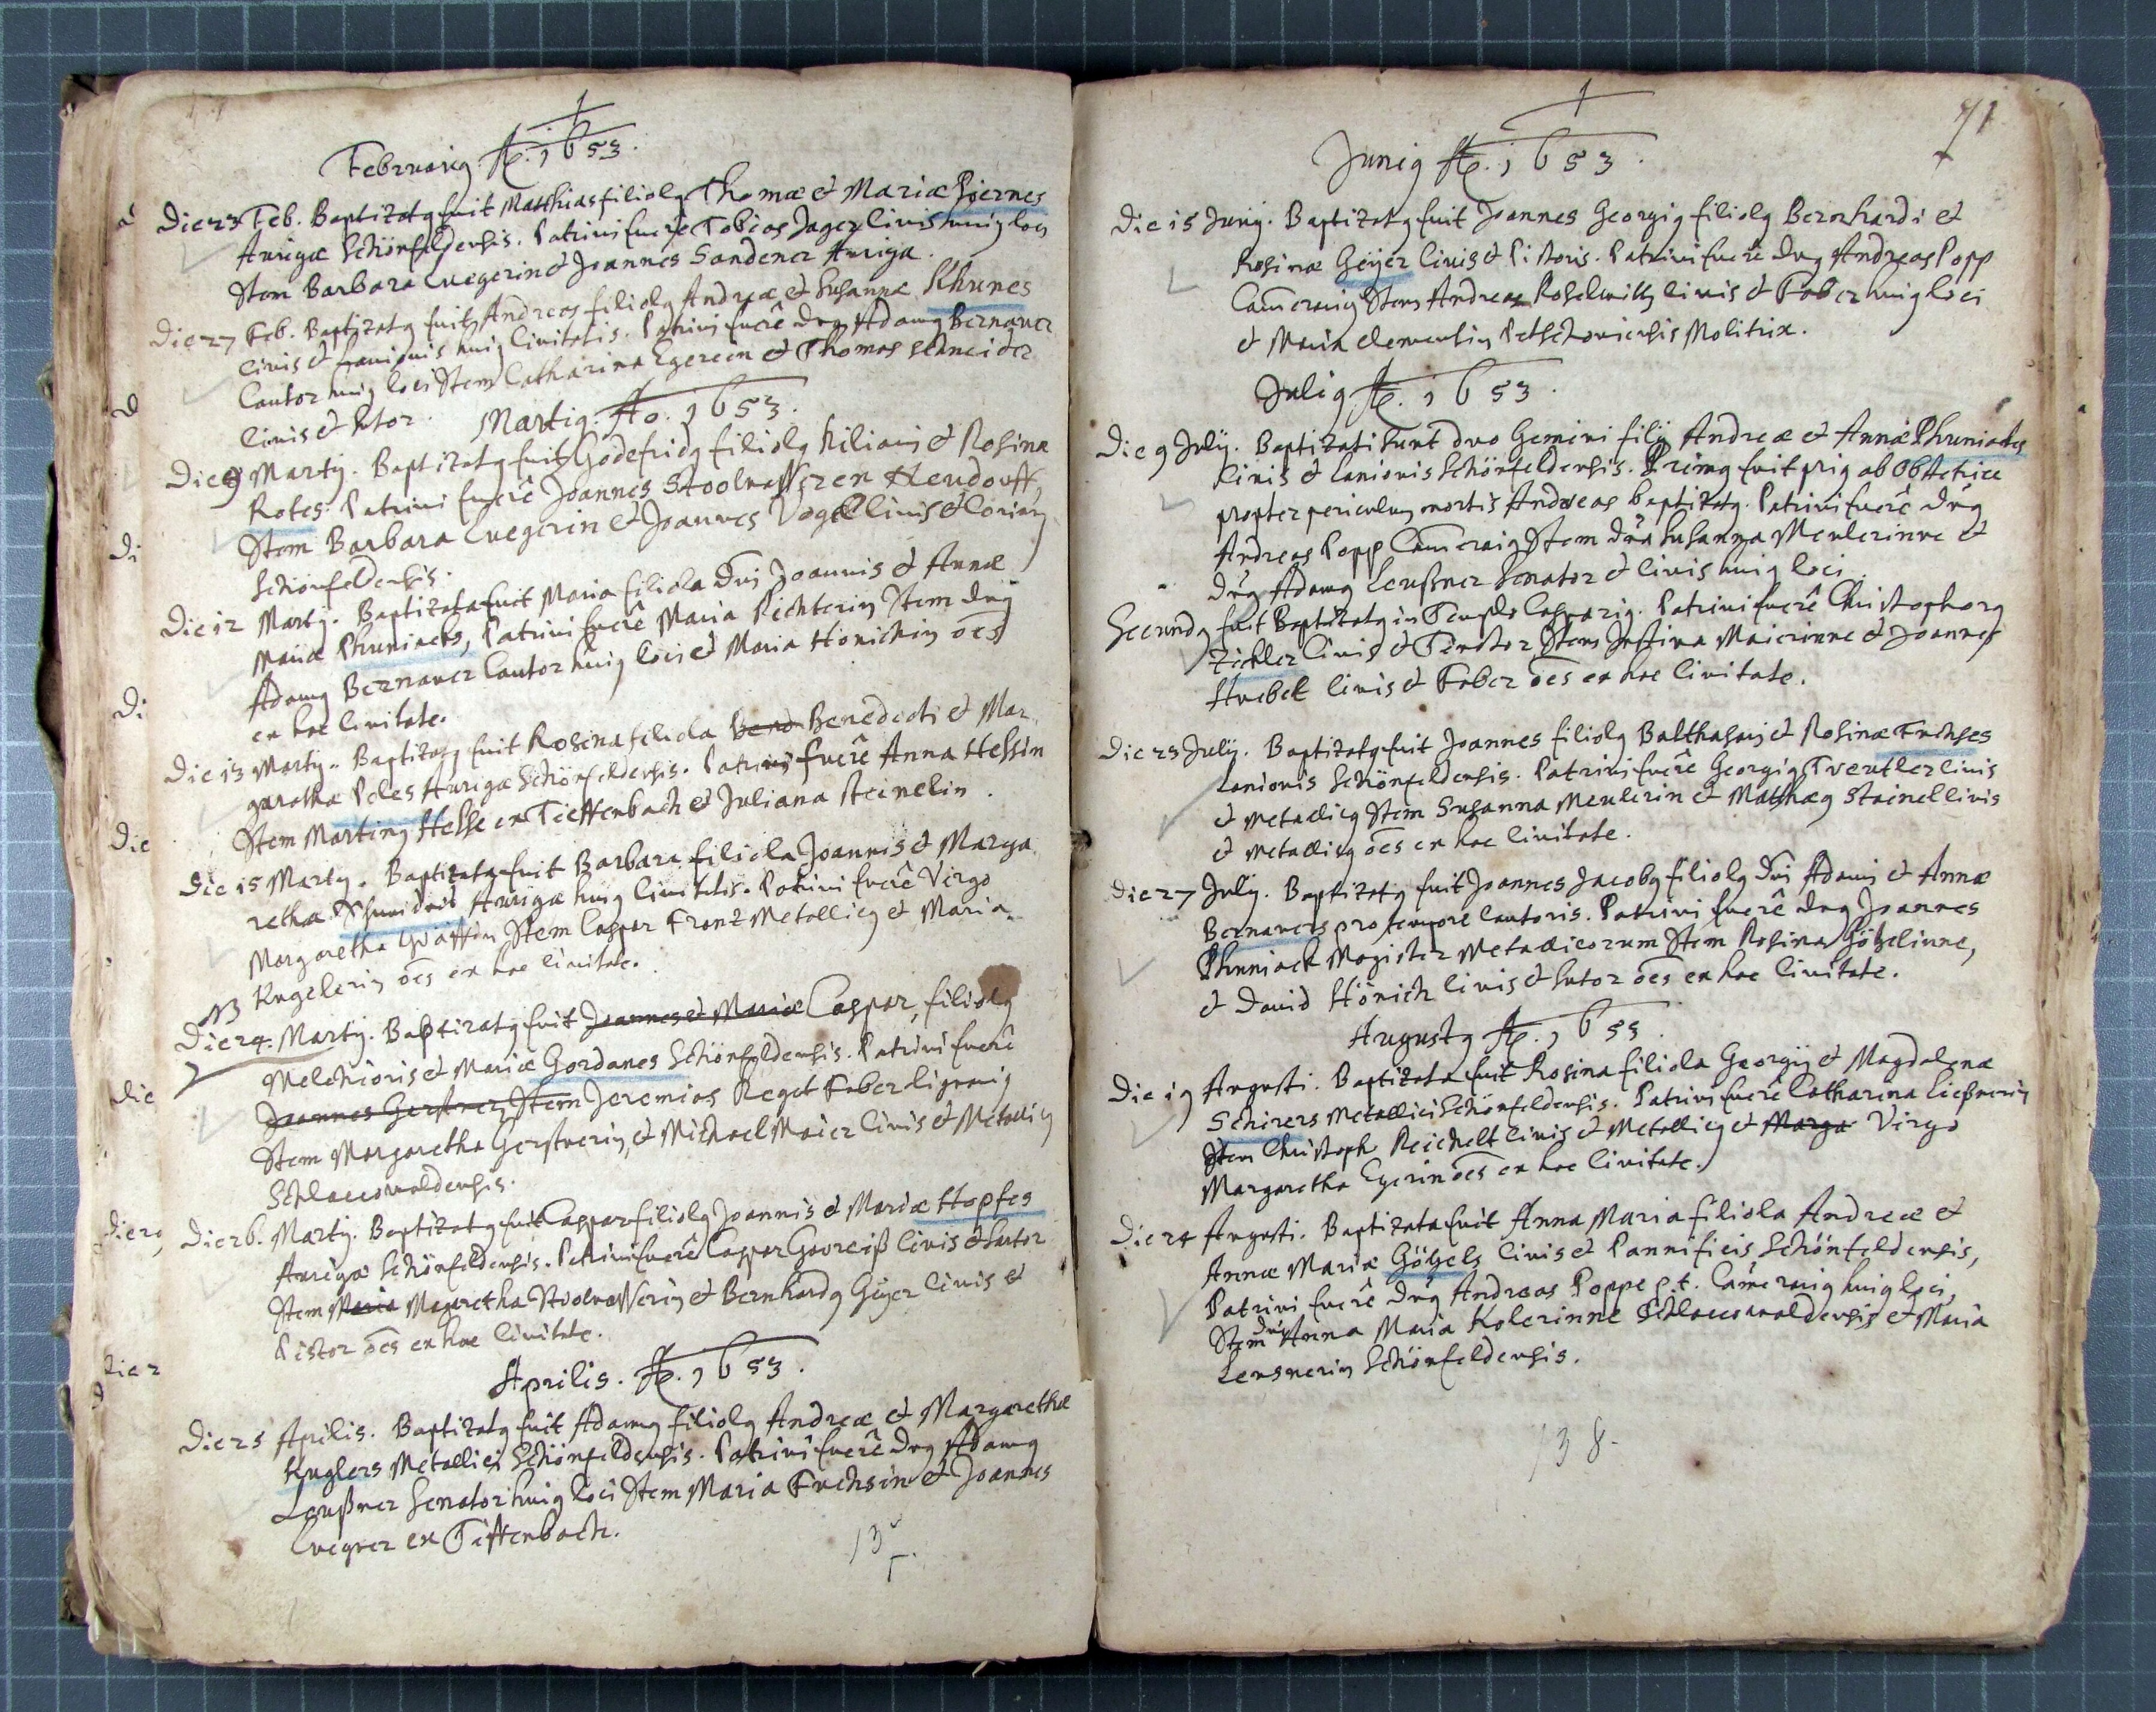 Februarig Ao. 1653.
Die 23 Feb. Baptizatg fuit Matthias filiolg Thomæ et Mariæ Piernes
Aurigæ Schönfeldensis. Patrini fuerê Tobias Jager Civis huig loci
Item Barbara Cuegerin et Joannes Sandner Auriga.
Die 27 Feb. Baptizatg fuit Andreas filiolg Andreæ et Susannæ Khunes
Civis et Lanionis huig Civitatis. Patrini fuerê Dng Adamg Bernauer
Cantor huig loci Item Catharina Egereen et Thomas Schneider
Civis et Sutor.
Martig. Ao. 1653.
Die 9 Martij. Baptizatg fuit Godefridg filiolg Kiliani et Rosinæ
Rotes. Patrini fuerê Joannes Stoolwasser en Neudorff,
Item Barbara Cuegerin et Joannes Vogel Civis et Coriarig
Schönfeldensis.
Die 12 Martij. Baptizata fuit Maria filiola Dni Joannis et Annæ
Mariæ Phuniacks, Patrini fuerê Maria Richterin Item Dng
Adamg Bernauer Cantor huig loci et Maria Hönichin oēs
ex hac Civitate.
Die 13 Martij. Baptizatg fuit Rosina filiola Bened Benedicti et Mar
garethæ Peles Aurigæ Schönfeldensis. Patrini fuerê Anna Hessin
Item Marting Hesse ex Tieffenbach et Juliana Steinelin.
Die 15 Martij. Baptizatg fuit Barbara filiola Joannis et Marga
rethæ Schneiders Aurigæ huig Civitatis. Patrini fuerê Virgo
Margaretha Gräffin Item Caspar Frantz Metallicg et Maria
Kugelerin oēs ex hac Civitate.
NB
Die 24. Martij. Baptizatg fuit Joannes et Mariæ Caspar, filiolg
Melchioris et Mariæ Gordanes Schönfeldensis. Patrini fuerê
Joannes Gerstner Item Jeremias Reget Faber lignarig
Item Margaretha Gerstnerin, et Michael Maier Civis et Metallicg
Schlaccowaldensis.
Die 26. Martij. Baptizatg fuit Caspar filiolg Joannis et Mariæ Hopfes
Aurigæ Schönfeldensis. Patrini fuerê Caspar Gevreiß Civis et Sutor
Item Maria Magaretha Stoolwasserin et Bernhardg Geÿer Civis et
Pistor oēs ex hac Civitate.
Aprilis. Ao. 1653.
Die 25 Aprilis. Baptizatg fuit Adamg filiolg Andreæ et Margarethæ
Kuglers Metallici Schönfeldensis. Patrini fuerê Dng Adamg
Leußner Senator huig loci Item Maria Fuchsin et Joannes
Cuegner ex Tiffenbach.
71
Junig Ao. 1653.
Die 15 Junij. Baptizatg fuit Joannes Georgig filiolg Bernhardi et
Rosinæ Geÿer Civis et Pistoris. Patrini fuerê Dng Andreas Popp
Camerarig Item Andreas Poselwitz Civis et Faber huig loci
et Maria Clementin Petschoviensis Molitrix.
Julig Ao. 1653.
Die 9 Julij. Baptizati sunt duo Gemini filij Andreæ et Annæ Phuniackes
Civis et Lanionis Schönfeldensis. Primg fuit prig ab Obstetrice
propter periculum mortis Andreas baptizatg. Patrini fuerê Dng
Andreas Popp Camerarig Item Dna Susanna Meulerinne et
Dng Adamg Leußner Senator et Civis huig loci.
Secundg fuit Baptizatg in Templo Casparig. Patrini fuerê Christophorg
Zickler Civis et Tinctor Item Justina Maierinne et Joannes
Huebel Civis et Faber oēs ex hac Civitate.
Die 23 Julij. Baptizatg fuit Joannes filiolg Balthasari et Rosinæ Fuchses
Lanionis Schönfeldensis. Patrini fuerê Georgig Treutler Civis
et Metallicg Item Susanna Meulerin et Matthæg Stainel Civis
et Metallicg oēs ex hac Civitate.
Die 27 Julij. Baptizatg fuit Joannes Jacobg filiolg Dni Adami et Annæ
Bernauers pro tempore Cantoris. Patrini fuerê Dng Joannes
Phuniack Magister Metallicorum Item Rosina Götzelinne,
et David Hönich Civis et Sutor oēs ex hac Civitate.
Augustg Ao. 1653.
Die 19 Augusti. Baptizata fuit Rosina filiola Georgij et Magdalenæ
Schirers Metallici Schönfeldensis. Patrini fuerê Catharina Ließnerin
Item Christoph Reichelt Civis et Metallicg et Marga Virgo
Margaretha Egerin oēs ex hac Civitate.
Die 24 Augusti. Baptizata fuit Anna Maria filiola Andreæ et
Annæ Mariæ Götzels Civis et Pannificis Schönfeldensis,
Patrini fuerê Dng Andreas Poppe p.t. Camerarig huig loci,
Item Dna Anna Maria Kolerinne Schlaccowaldensis et Maria
Leusnerin Schönfeldensis.
138.